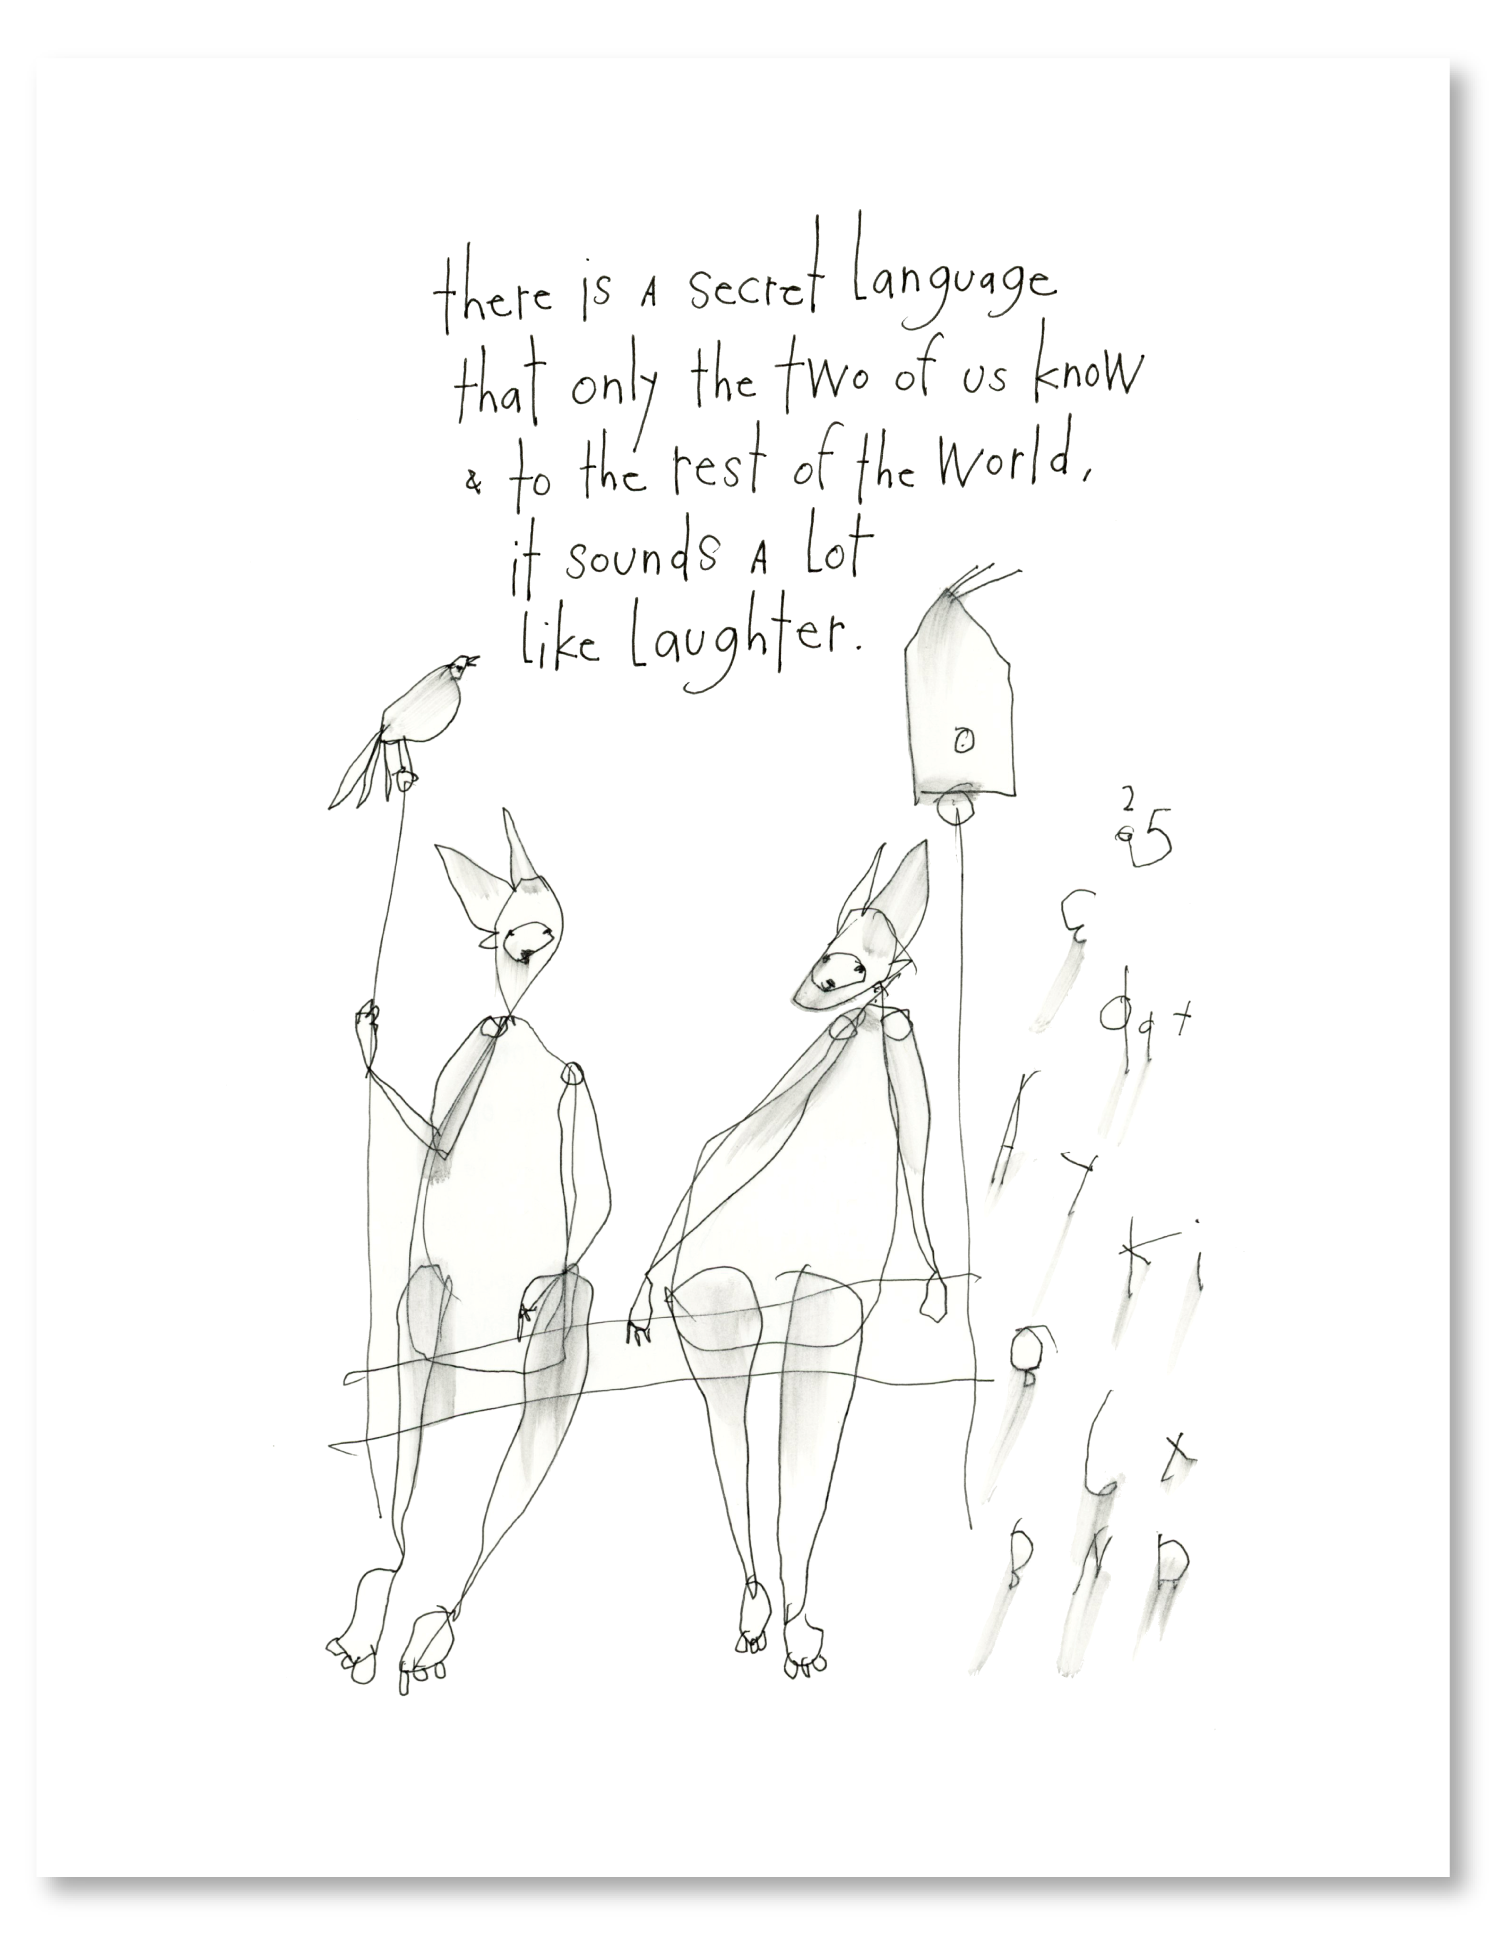 there is A secret language
that only the two of us know
& to the rest of the world,
it sounds A lot
like laughter.
2
e5